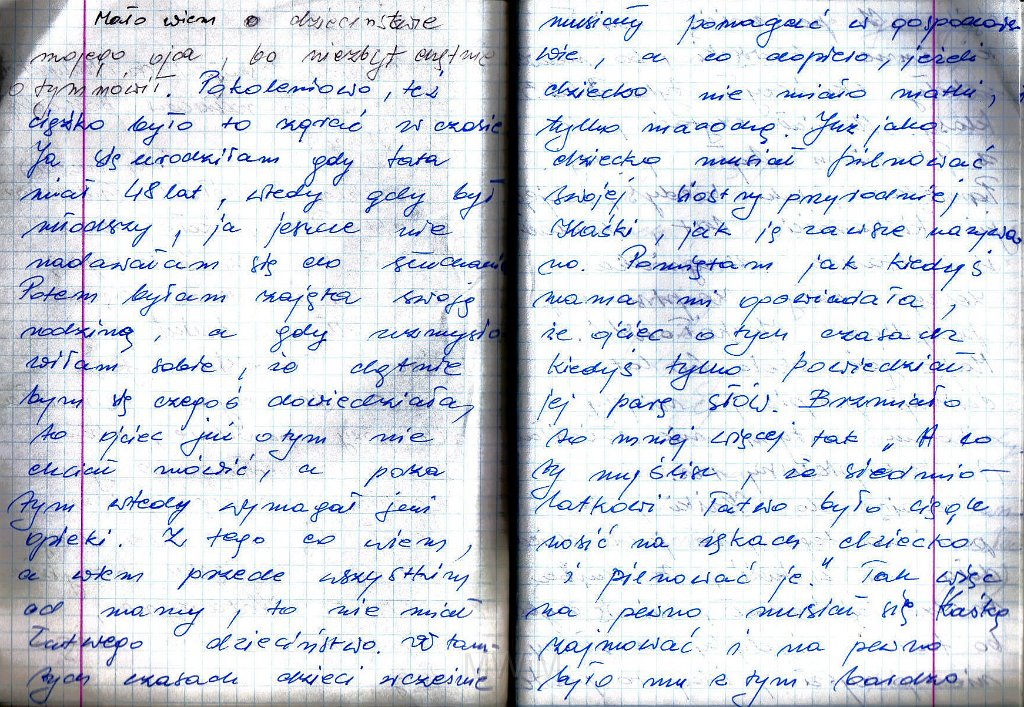 Mało wiem o dzieciństwie
mojego ojca, bo niezbyt chętnie
o tym mówił. Pokoleniowo, też
ciężko było to zgrać w czasie.
Ja się urodziłam gdy tata
miał 48 lat, wtedy gdy był
młodszy, ja jeszcze nie
nadawałam się do słuchania
Potem byłam zajęta swoją
rodziną, a gdy uzmysło
wiłam sobie, że chętnie
bym się czegoś dowiedziała,
to ojciec już o tym nie
chciał mówić, a poza
tym wtedy wymagał już
opieki. Z tego co wiem,
a wiem przede wszystkim
od mamy, to nie miał
łatwego dzieciństwa. W tam-
tych czasach dzieci wcześnie
musiały pomagać w gospodarst
wie, a co dopiero, jeżeli
dziecko nie miało matki,
tylko macochę. Już jako
dziecko musiał pilnować
swojej siostry przyrodniej
Kaśki, jak ją zawsze nazywa
no. Pamiętam jak kiedyś
mama mi opowiadała,
że ojciec o tych czasach
kiedyś tylko powiedział
jej parę słów. Brzmiało
to mniej więcej tak „A co
ty myślisz, że siedmio-
latkowi łatwo było ciągle
nosić na rękach dziecko
i pilnować je." Tak więc
na pewno musiał się Kaśką
zajmować i na pewno
było mu z tym bardzo